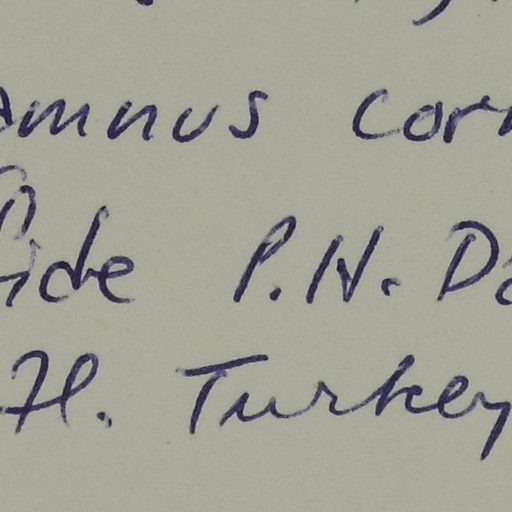 amnus cor
fide P.H. Da
Fl. Turkey